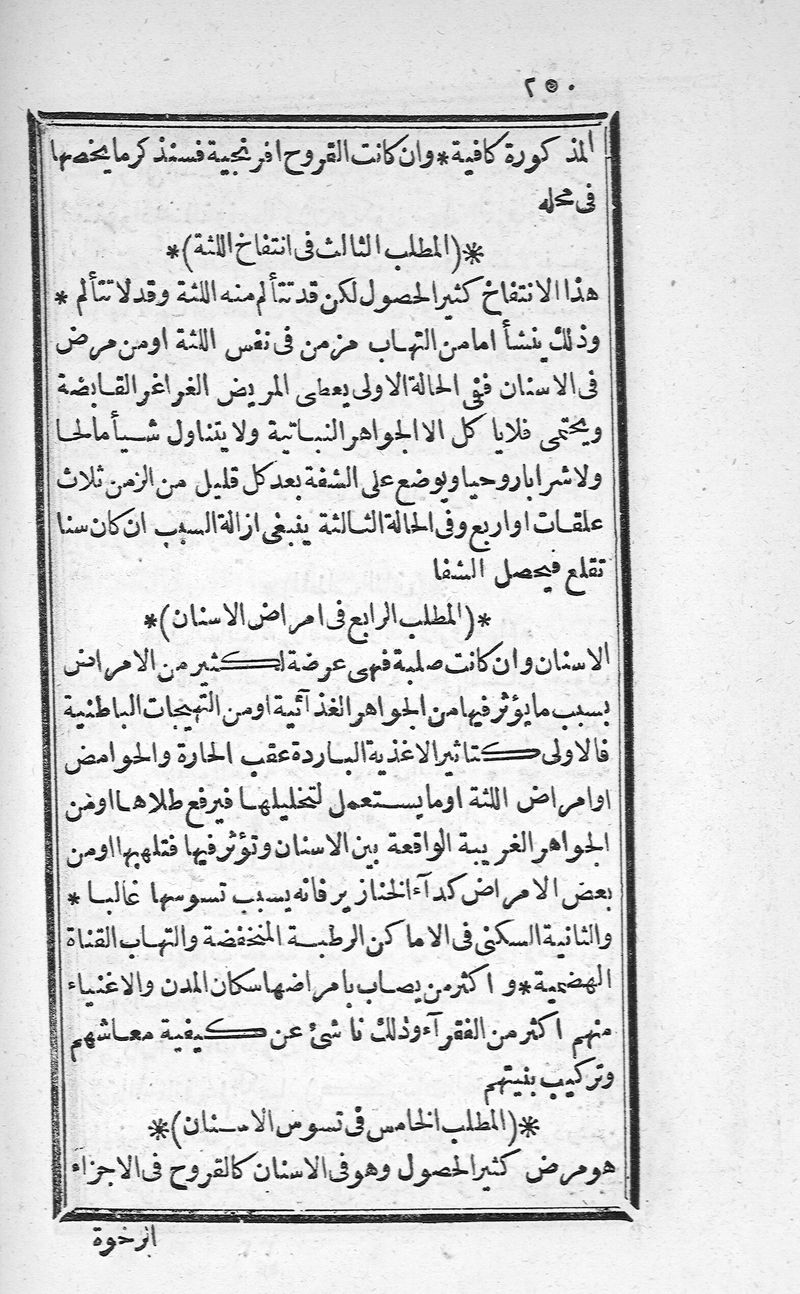 ٢٥٠
المذكورة كافية * وان كانت القروح افرنجية فسنذكر ما يخصها
فى محله
*(المطلب الثالث فى انتفاخ اللثة)*
هذا الانتفاخ كثير الحصول لكن قد تتألم منه اللثة وقد لا تتألم *
وذلك ينشأ اما من التهاب مزمن فى نفس اللثة اومن مرض
فى الاسنان ففى الحالة الاولى يعطى المريض الغراغر القابضة
ويحتمى فلا يا كل الا الجواهر النباتية ولا يتناول شيأ مالحا
ولا شرابا روحيا ويوضع على الشفة بعد كل قليل من الزمن ثلاث
علقات او اربع وفى الحالة الثالثة ينبغى ازالة السبب ان كان سنا
تقلع فيحصل الشفا
*(المطلب الرابع فى امراض الاسنان)*
الاسنان وان كانت صلبة فهى عرضة لكثير من الامراض
بسبب ما يؤثر فيها من الجواهر الغذآئية اومن التهيجات الباطنية
فالاولى كتاثير الاغذية الباردة عقب الحارة والحوامض
اوامراض اللثة اوما يستعمل لتخليلها فيرفع طلاها اومن
الجواهر الغريبة الواقعة بين الاسنان وتؤثر فيها فتلهبها اومن
بعض الامراض كدآء الخنازير فانه يسبب تسوسها غالبا *
والثانية السكنى فى الاماكن الرطبة المنخفضة والتهاب القناة
الهضمية * واكثر من يصاب بامراضها سكان المدن والاغنياء
منهم اكثر من الفقرآء وذلك ناشئ عن كيفية معاشهم
وتركيب بنيتهم
*(المطلب الخامس فى تسوس الاسنان)*
هو مرض كثير الحصول وهو فى الاسنان كالقروح فى الاجزآء
الرخوة